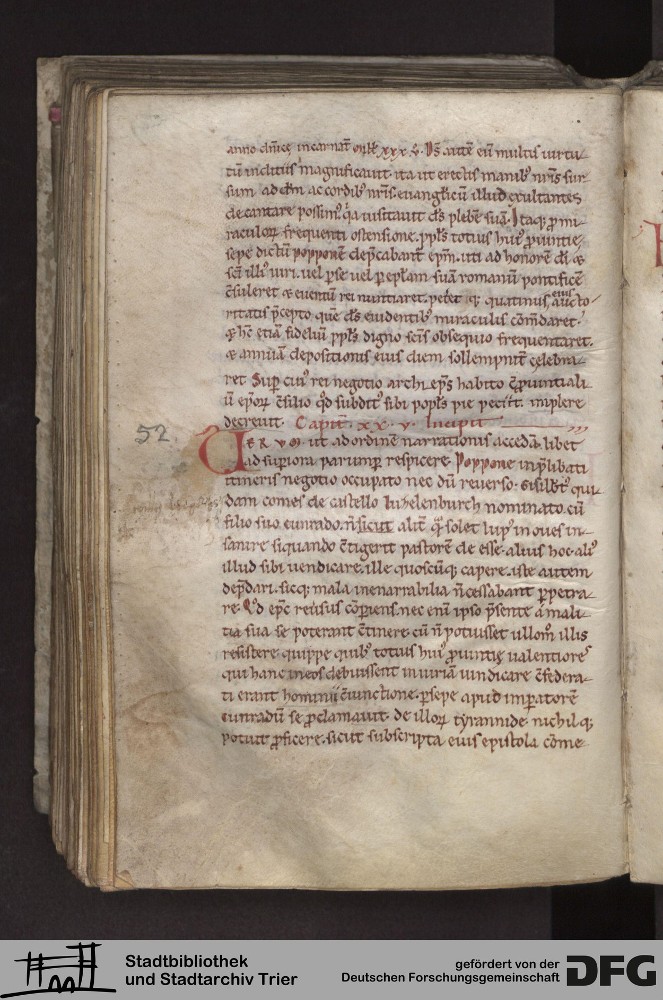 anno dñicę incarnat̄ m̊xl̊ xxx v̊. D̄s autē eū multis uirtu-
tū inditiis magnificauit ita ut erectis manib; nr̄is sur-
sum ad dm̄ ac cordib; nr̄is. euanglicū illud exultantes
decantare possim; q̇a uisitauit ds̄ plebē suā. Itaq; ꝓ mi-
raculoꝝ frequenti ostensione. ppl̄s totius hui; ꝓuintię.
sepe dictū popponē dep̄cabant ep̄m. uti ad honorē dī &
sc̄i illi; uiri. uel p̱ se uel p̱ ep̄lam suā romanū pontificē
c̄suleret & euentū rei nuntiaret. petet̄ q; quatinus eius aucto-
ritatis p̄cepto quē ds̄ euidentib; miraculis cōm̄daret.
& hc̄ etiā fideliū ppl̄s digno sc̄is obsequio frequentaret.
& annuā depositionis eius diem sollempnit̄ celebra-
ret. Sup̱ cui; rei negotio archiep̄s habito c̄ꝓuintiali-
ū ep̄oꝝ c̄silio qd̄ subdit; sibi popl̄s pie petiit. implere
decreuit. Capit̄. xx. v. Incipit
52 VERVM ut ad ordinē narrationis accedā. libet
ad sup̱iora parump̱ respicere. Poppone inp̄libati
itineris negotio occupato nec dū reuerso. Gisilb̄t; qui-
dam comes de castello luzelenburch nominato. cū
filio suo cunrado. n̄ sicut alit̄ q̄ solet lup; in oues in-
sanire siquando c̄tigerit pastorē deesse. alius hoc. ali;
illud sibi uendicare. ille quoscūq; capere. iste autem
dep̄dari. sicq; mala inenarrabilia n̄ cessabant p̱petra-
re. Qd̄ ep̄c reuersus cōp̱iens. nec enī ipso p̄sente a mali-
tia sua se poterant c̄tinere. cū n̄ potuisset ullom̊ illis
resistere quippe quib; totius hui; ꝓuintię ualentiores
qui hanc in eos debuissent iniuriā uindicare c̄federa-
ti erant hominii c̄iunctione. p̱sepe apud imp̱atorē
cunradū se ꝓclamauit. de illoꝝ tẏrannide. nichilq;
potuit ꝓficere. sicut subscripta eius epistola cōme-
Stadtbibliothek
und Stadtarchiv Trier
gefördert von der
Deutschen Forschungsgemeinschaft
DFG